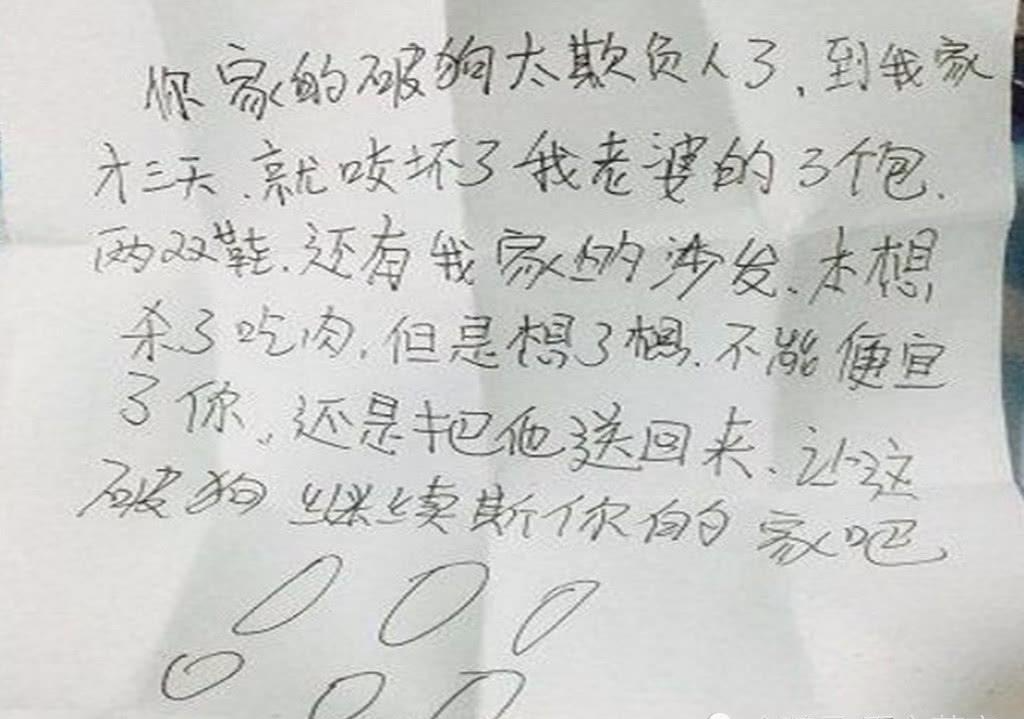 你家的破狗太欺负人了，到我家
才三天、就咬坏了我老婆的3个包、
两双鞋、还有我家的沙发、本想
杀了吃肉，但是想了想、不能便宜
了你、还是把他送回来、让这
破狗继续斯你的家吧